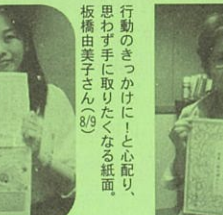 行動のきっかけに！と心配り、
思わず手に取りたくなる紙面。
板橋由美子さん（8/9）